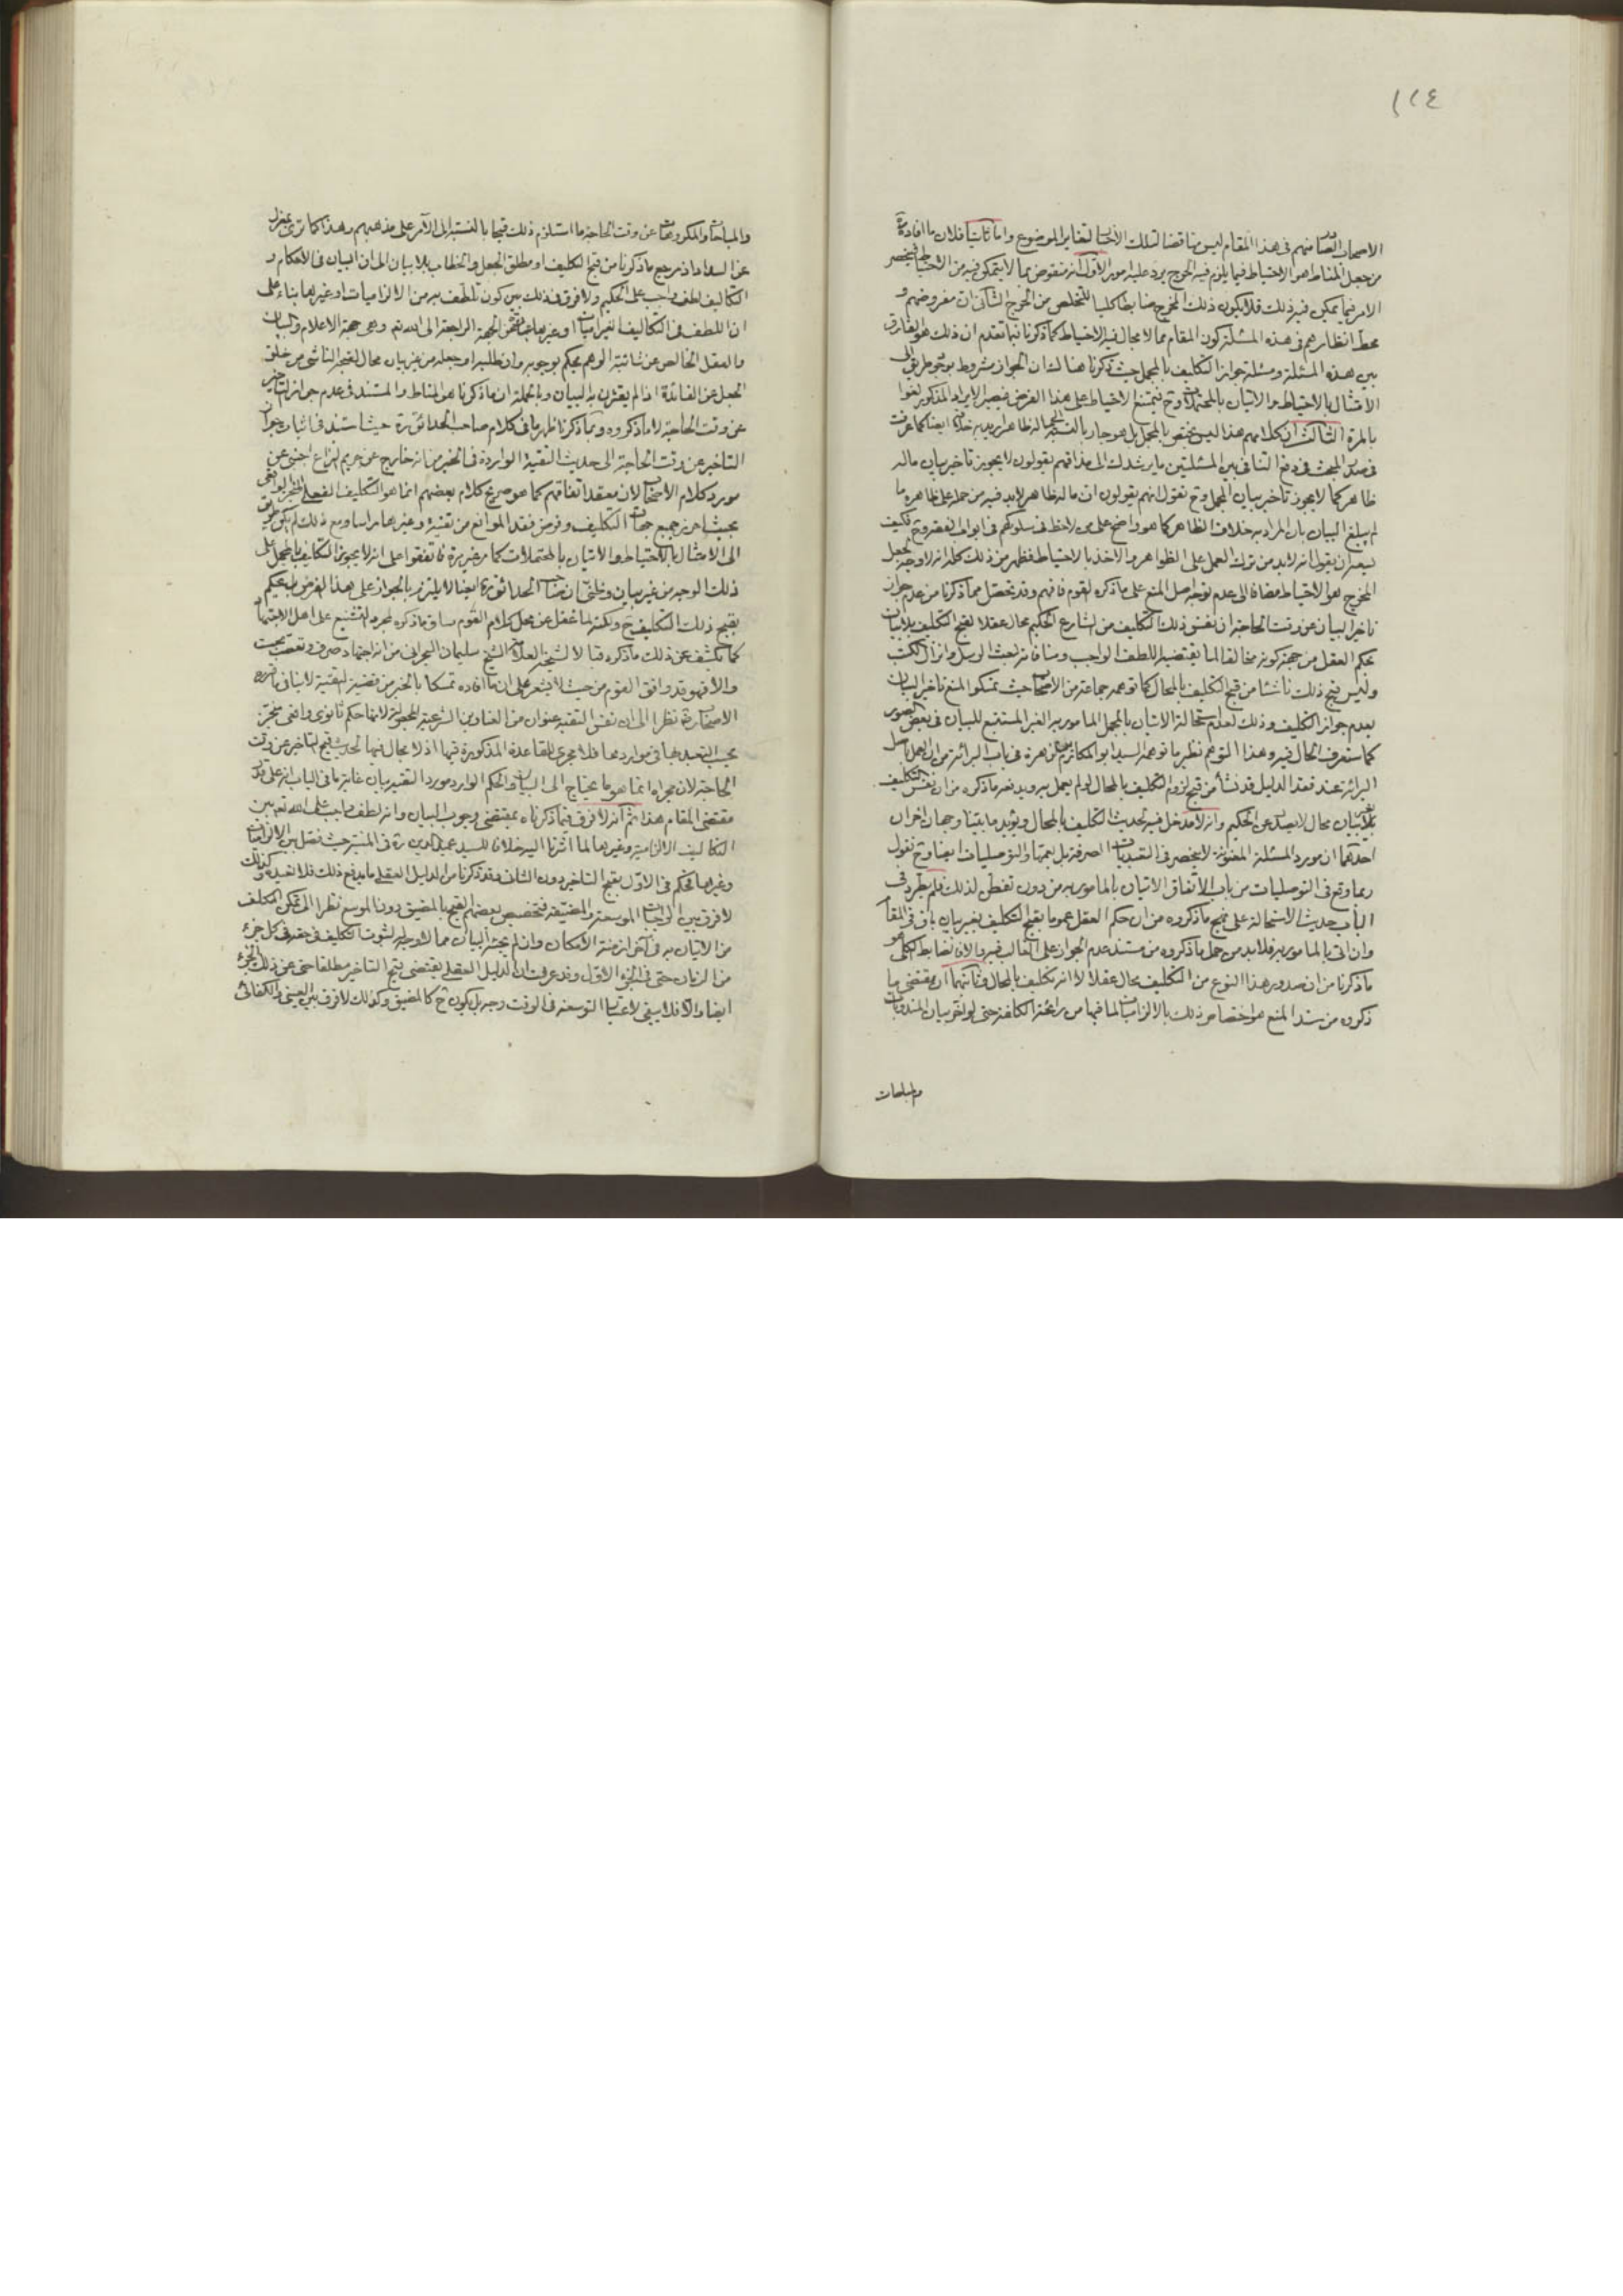 ١٢٤
الاصحاب الصادر منهم في هذا المقام ليس مناقضا لتلك الأخبار لتغاير الموضوع واما ثانيا فلان ما افاده
من جعل المناط هو الاحتياط فيما يلزم فيه الحرج يرد عليه امور الأول انه منقوض بما لا يتمكن فيه من الاحتياط فينحصر
الامر فيما يمكن فيه ذلك فلا يكون ذلك المخرج ضابطا كليا للتخلص من الحرج الثاني ان مفروضهم و
محط انظارهم في هذه المسئلة كون المقام مما لا مجال فيه للاحتياط كما ذكرنا فيما تقدم ان ذلك هو الفارق
بين هذه المسئلة ومسئلة جواز التكليف بالمجمل حيث ذكرنا هنالك ان الجواز مشروط بوجود طريق الى
الامتثال بالاحتياط والاتيان بالمحتملات وح فيمتنع الاحتياط على هذا الفرض فيصير الايراد المذكور لغوا
بالمرة الثالث ان كلامهم هذا ليس يختص بالمجمل بل هو جار بالنسبة الى ما له ظاهر اريد به خلافه ايضا كما عرفت
في صدر المبحث في دفع التنافي بين المسئلتين ما يرشدك الى هذا فهم يقولون لا يجوز تاخير بيان ما له
ظاهر كما لا يجوز تاخير بيان المجمل وح نقول انهم يقولون ان ما له ظاهر لابد فيه من حمله على ظاهره ما
لم يبلغ البيان بان المراد به خلاف الظاهر كما هو واضح على من لاحظ في سلوكهم في ابواب الفقه وح فكيف
يسعه ان يقول انه لابد من ترك العمل على الظواهر والاخذ بالاحتياط فظهر من ذلك كله انه لا وجه لجعل
المخرج هو الاحتياط مضافا الى عدم توجه اصل المنع على ما ذكره القوم فافهم وقد تحصّل مما ذكرنا من عدم جواز
تاخير البيان عن وقت الحاجة ان نفس ذلك التكليف من الشارع الحكيم محال عقلا لقبح التكليف بلا بيان
بحكم العقل من جهة كونه مخالفا لما يقتضيه اللطف الواجب ومنافاته لبعث الرسل وانزال الكتب
وليس قبح ذلك ناشئا من قبح التكليف بالمحال كما توهمه جماعة من الاصحاب حيث تمسكوا لمنع تاخير البيان
بعدم جواز التكليف وذلك لعدم استحالة الاتيان بالمجمل المامور به الغير المستتبع للبيان في بعض الصور
كما ستعرف الحال فيه وهذا التوهم نظير ما توهمه السيد ابو المكارم ابن زهرة في باب البرائة من ان العمل باصل
البرائة عند فقد الدليل قد نشأ من قبح لزوم التكليف بالمحال لو لم يعمل به ويدفعه ما ذكره من ان نفس التكليف
بلا بيان محال لا يصدر عن الحكيم وانه لا مدخل فيه لحديث التكليف بالمحال ويؤيد ما بيّنا وجهان اخران
احدهما ان مورد المسئلة المعنونة لا ينحصر في التعبديات الصرفة بل يعمها والتوصليات ايضا وح نقول
ربما وقع في التوصليات من باب الاتفاق الاتيان بالمامور به من دون تفطن لذلك فلم يطرد في
الباب حديث الاستحالة على نهج ما ذكروه من ان حكم العقل عموما بقبح التكليف بغير بيان باق في المقام
وان اتى بالمامور به فلابد من حمل ما ذكروه من مستند عدم الجواز على الغالب فيه والا فالضابط الكلي هو
ما ذكرنا من ان صدور هذا النوع من التكليف محال عقلا لا انه تكليف بالمحال وثانيهما ان مقتضى ما
ذكروه من سند المنع هو اختصاص ذلك بالالزاميات لما فيها من رائحة الكلفة حتى لو اخر بيان المندوبات
والمباحات
والمباحات والمكروهات عن وقت الحاجة ما استلزم ذلك قبحا بالنسبة الى الآمر على مذهبهم وهذا كما ترى بمعزل
عن السداد اذ مرجع ما ذكرنا من قبح التكليف او مطلق الجعل والخطاب بلا بيان الى ان البيان في الاحكام و
التكاليف لطف واجب على الحكيم ولا فرق في ذلك بين كون ما لطف به من الالزاميات او غيرها بناء على
ان اللطف في التكاليف الغير الزاميات او غيرها الجهة الراجعة الى الله تعم وهي جهة الاعلام والبيان
والعقل الخالص عن شائبة الوهم يحكم بوجوبه وان طلبه او جعله من غير بيان محال لقبحه الناشي من خلو
الجعل عن الفائدة اذا لم يقترن به البيان وبالجملة ان ما ذكرنا هو المناط والمستند في عدم جواز التاخير
عن وقت الحاجة لا ما ذكروه ومما ذكرنا ظهر ما في كلام صاحب الحدائق ره حيث استند في اثبات جواز
التاخير عن وقت الحاجة الى حديث التقية الواردة في الخبر من انه خارج عن حريم النزاع اجنبي عن
مورد كلام الاصحاب لان معقد اتفاقهم كما هو صريح كلام بعضهم انما هو التكليف الفعلي المنجز الواقعي
بحيث احرز جميع جهات التكليف وفرض فقد الموانع من تقية وغيرها راسا ومع ذلك لم يكن طريق
الى الامتثال بالاحتياط والاتيان بالمحتملات كما مر غير مرة فاتفقوا على انه لا يجوز التكليف بالمجمل على
ذلك الوجه من غير بيان وظني ان صاحب الحدائق ره ايضا لا يلتزم بالجواز على هذا الفرض بل يحكم
بقبح ذلك التكليف ح ولكنه لما غفل عن محل كلام القوم ساق ما ذكره لمجرد التشنيع على اهل الاجتهاد
كما يكشف عن ذلك ما ذكره قبالا لشيخه العلامة الشيخ سليمان البحراني من انه اجتهاد صرف وتعصب بحت
والا فهو قد وافق القوم من حيث لا يشعر على ان ما افاده تمسكا بالخبر من قضية التقية لا ينافي ما قرره
الاصحاب ره نظرا الى ان نفس التقية عنوان من العناوين الشرعية المجعولة لانها حكم ثانوي واقعي منجز
يجب التعبد بها في مواردها فلا مجرى للقاعدة المذكورة فيها اذ لا مجال فيها لحديث قبح التاخير عن وقت
الحاجة لان مجراه انما هو ما يحتاج الى البيان والحكم الوارد مورد التقية بيان غاية ما في الباب انه على قدر
مقتضى المقام هذا ثم انه لا فرق فيما ذكرناه بمقتضى وجوب البيان وانه لطف واجب على الله تعم بين
التكاليف الالزامية وغيرها لما اشرنا اليه خلافا للسيد عميد الدين ره في المنية حيث فصل بين الالزاميات
وغيرها فحكم في الاول بقبح التاخير دون الثاني وقد ذكرنا من الدليل العقلي ما يدفع ذلك فلا نعيده وكذلك
لا فرق بين الواجبات الموسعة والمضيقة فتخصيص بعضهم القبح بالمضيق دون الموسع نظرا الى تمكن المكلف
من الاتيان به في آخر ازمنة الامكان وان لم يجئه البيان مما لا وجه له لثبوت التكليف في حقه في كل جزء
من الزمان حتى في الجزء الاول وقد عرفت ان الدليل العقلي يقتضي قبح التاخير مطلقا حتى عن ذلك الجزء
ايضا والا فلا يبقى لاعتبار التوسعة في الوقت وجه بل يكون ح كالمضيق وكذلك لا فرق بين العيني والكفائي